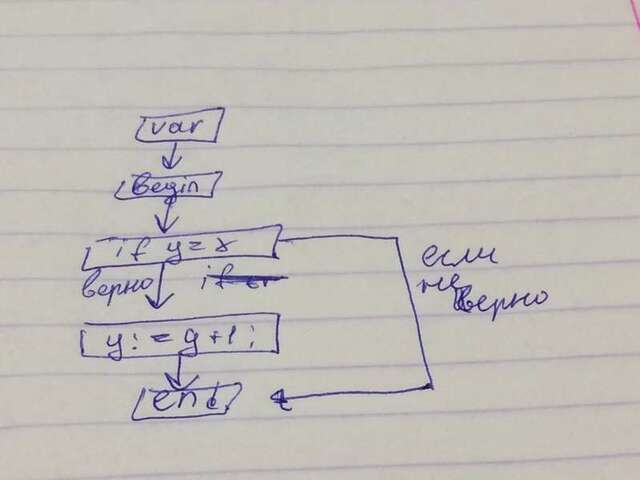 var
Begin
if y=x
верно
если
не верно
y:=y+1;
end